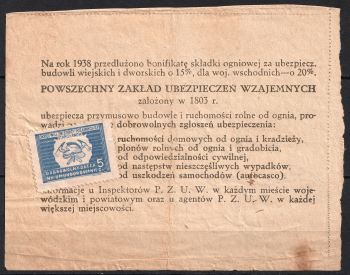 Na rok 1938 przedłużono bonifikatę składki ogniowej za ubezpiecz.
budowli wiejskich i dworskich o 15%, dla woj. wschodnich—o 20%.
POWSZECHNY ZAKŁAD UBEZPIECZEŃ WZAJEMNYCH
założony w 1803 r.
ubezpiecza przymusowo budowle i ruchomości rolne od ognia, pro-
wadzi dobrowolnych zgłoszeń ubezpieczenia:
ruchomości domowych od ognia i kradzieży,
plonów rolnych od ognia i gradobicia,
od odpowiedzialności cywilnej,
od następstw nieszczęśliwych wypadków,
od uszkodzeń samochodów (autocasco).
5
Informacje u Inspektorów P. Z. U. W. w każdym mieście woje-
wódzkim i powiatowym oraz u agentów P. Z. U. W. w każdej
większej miejscowości.